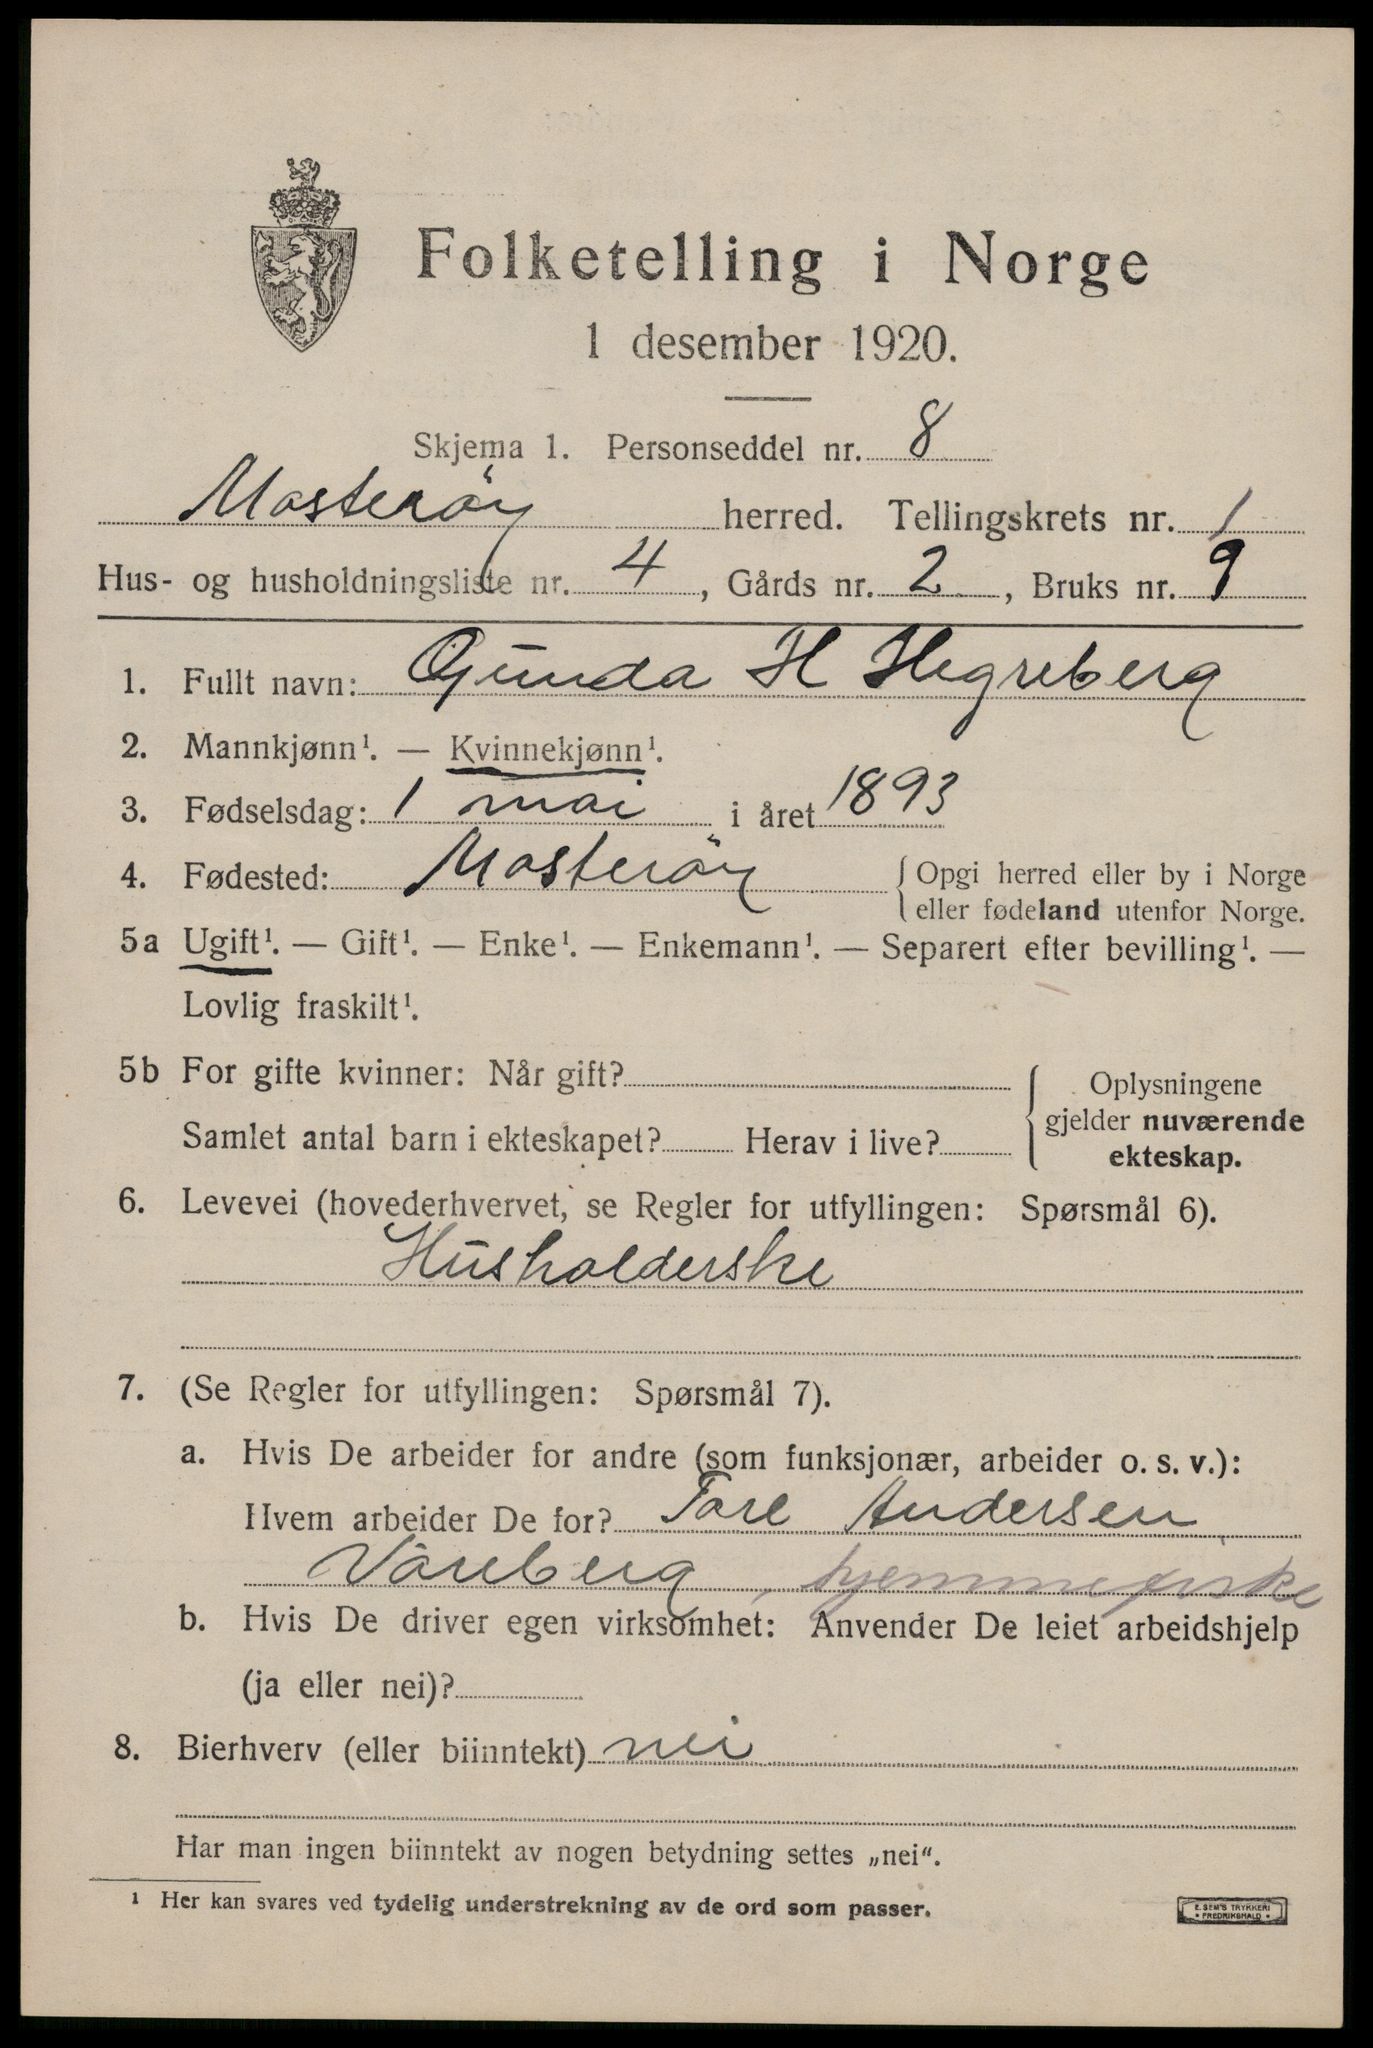 Folketelling i Norge
1 desember 1920.
Skjema 1. Personseddel nr. 8
Mosterøy herred. Tellingskrets nr. 1
Hus- og husholdningsliste nr. 4, Gårds nr. 2, Bruks nr. 9
1. Fullt navn: Gunda H Hegreberg
2. Mannkjønn¹. — Kvinnekjønn¹.
3. Fødselsdag: 1 mai i året 1893
4. Fødested: Mosterøy { Opgi herred eller by i Norge
eller fødeland utenfor Norge.
5a Ugift¹. — Gift¹. — Enke¹. — Enkemann¹. — Separert efter bevilling¹. —
Lovlig fraskilt¹.
5b For gifte kvinner: Når gift?
Samlet antal barn i ekteskapet? Herav i live?
{ Oplysningene
gjelder nuværende
ekteskap.
6. Levevei (hovederhvervet, se Regler for utfyllingen: Spørsmål 6).
Husholderske
7. (Se Regler for utfyllingen: Spørsmål 7).
a. Hvis De arbeider for andre (som funksjonær, arbeider o. s. v.):
Hvem arbeider De for? Tore Andersen
Våreberg, hjemmefiske
b. Hvis De driver egen virksomhet: Anvender De leiet arbeidshjelp
(ja eller nei)?
8. Bierhverv (eller biinntekt) nei
Har man ingen biinntekt av nogen betydning settes „nei".
¹ Her kan svares ved tydelig understrekning av de ord som passer.
E. SEM'S TRYKKERI
• FREDRIKSHALD •